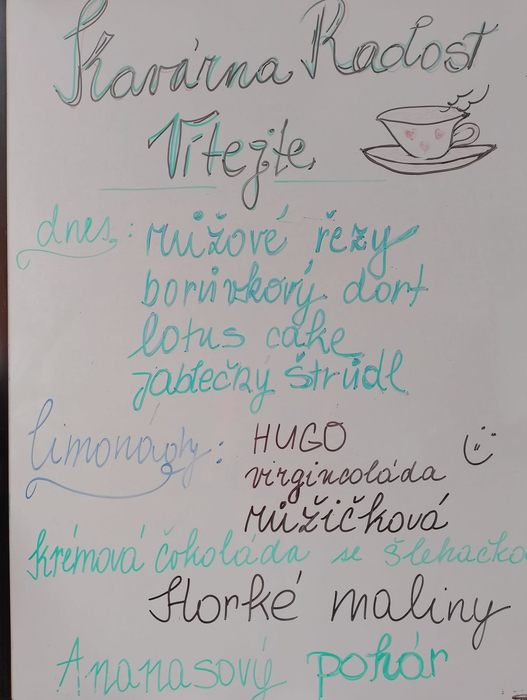 Kavárna Radost
Vítejte
dnes: růžové řezy
borůvkový dort
lotus cake
jablečný štrůdl
limonády: HUGO
virgincoláda
růžičková
krémová čokoláda se šlehačko
Horké maliny
Ananasový pohár